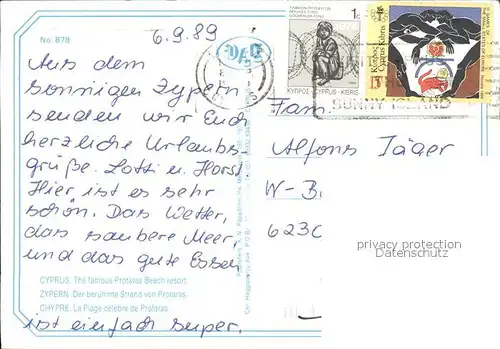 No. 878
6.9.89
1c
ΚΥΠΡΟΣ-CYPRUS-KIBRIS
Κύπρος
Cyprus Kıbrıs
SUNNY ISLAND
Aus dem
sonnigen Zypern
senden wir Euch
herzliche Urlaubs-
grüße. Lotti u. Horst
Hier ist es sehr
schön. Das Wetter,
das saubere Meer,
und das gute Essen
CYPRUS. The famous Protaras Beach resort.
ZYPERN. Der berühmte Strand von Protaras
CHYPRE. La Plage célèbre de Protaras
ist einfach super.
Fam.
Alfons Jäger
W-B
6230
privacy protection
Datenschutz